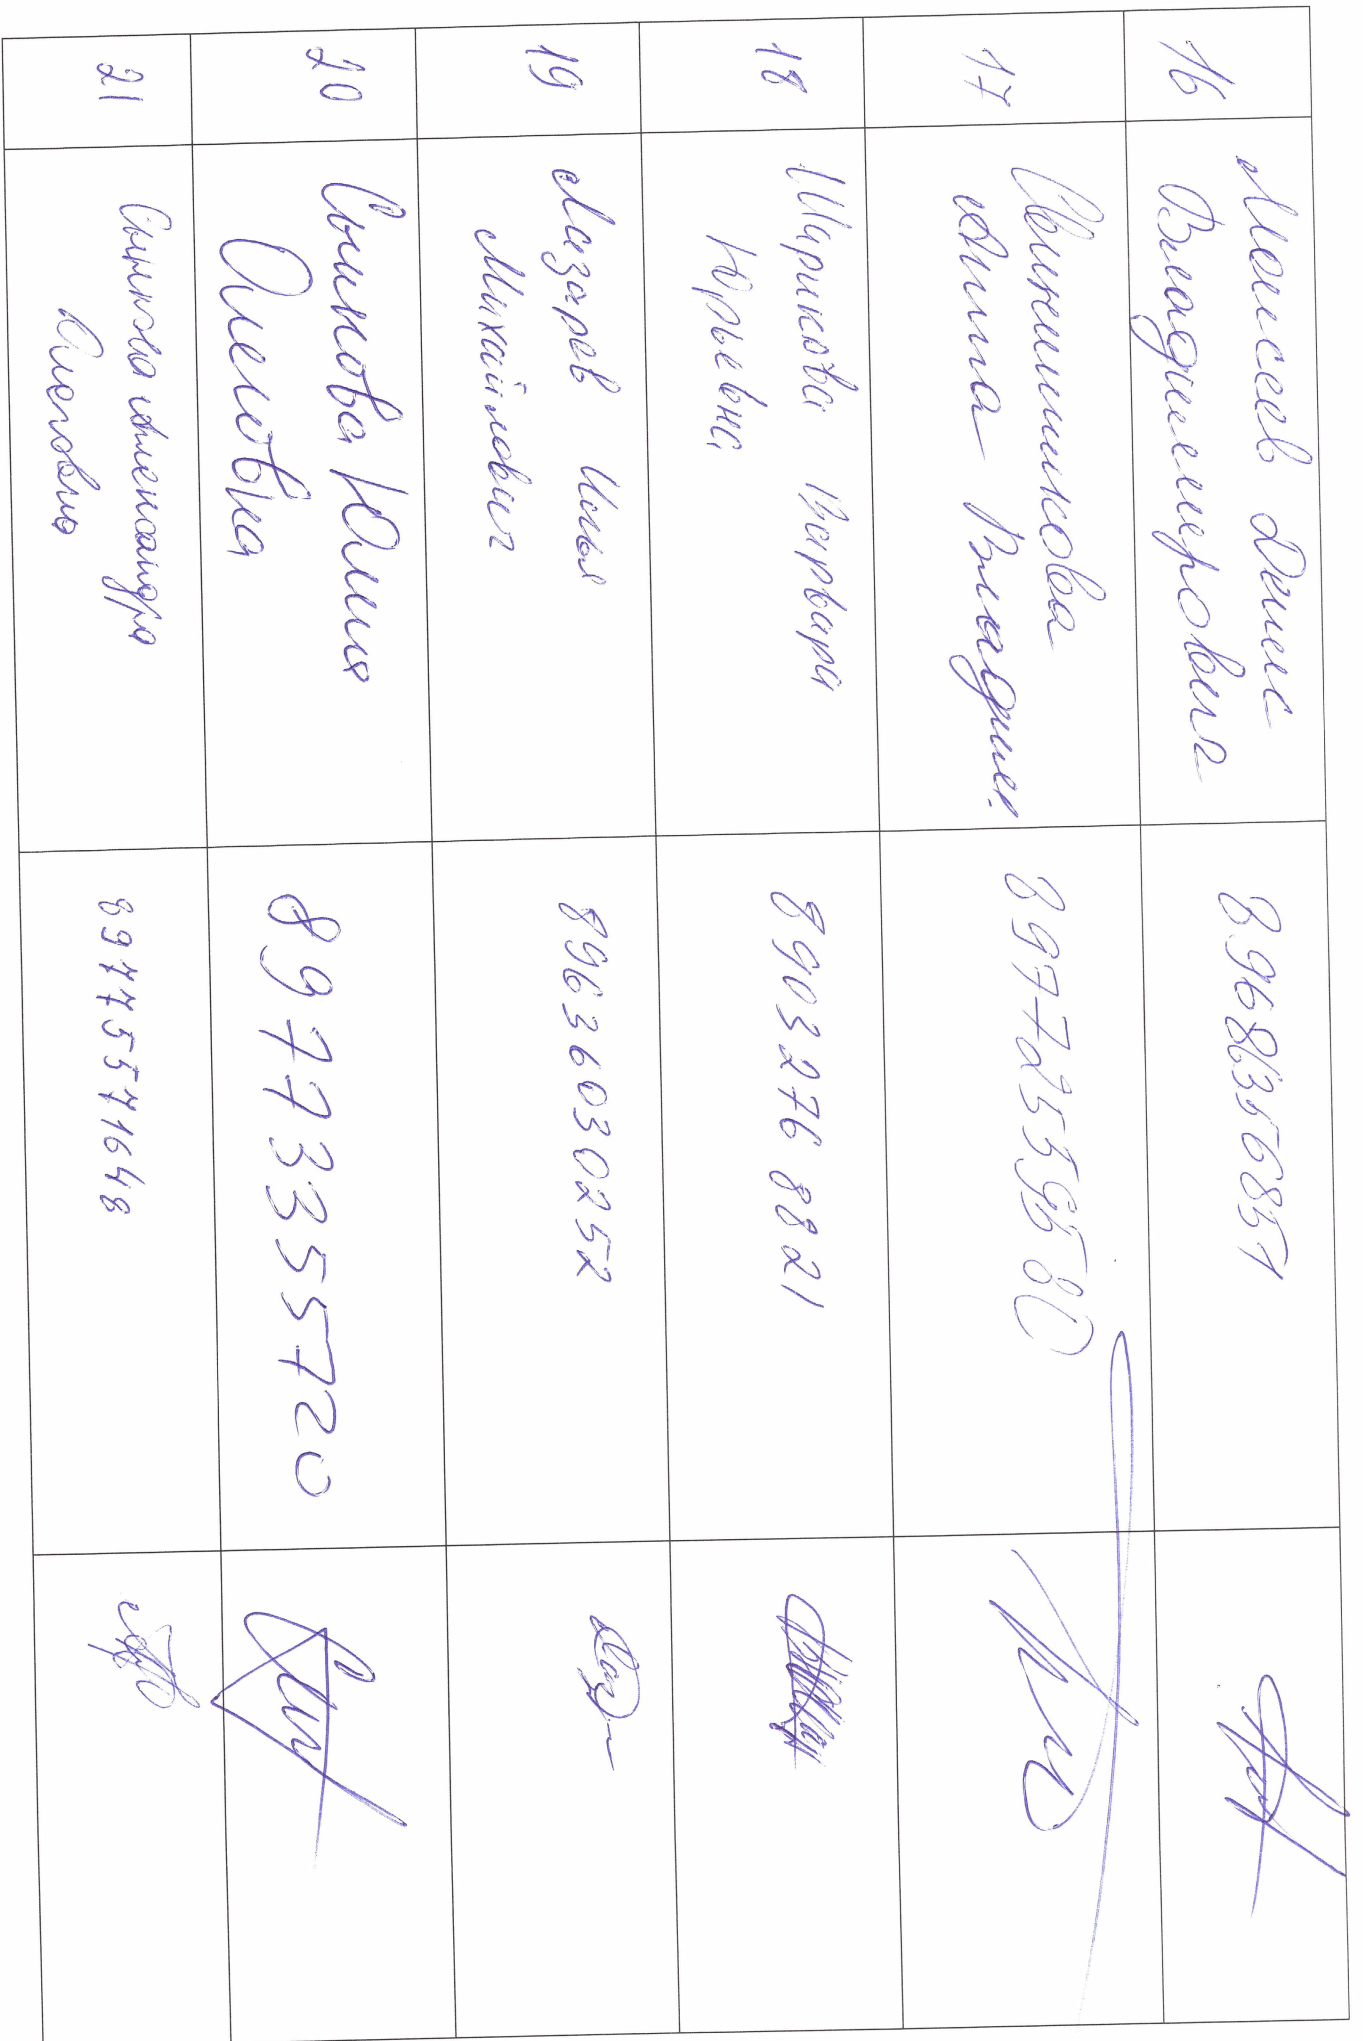 16
Моисеев Денис
Владимирович
89686356851
17
Свинтицкова
Анна Владим.
89772559580
18
Шарикова Варвара
Юрьевна
8903276 8821
19
Лазарев Илья
Михайлович
89636030252
20
Сынкова Юлия
Олеговна
89773355720
21
Сынкова Александра
Олеговна
89775571648